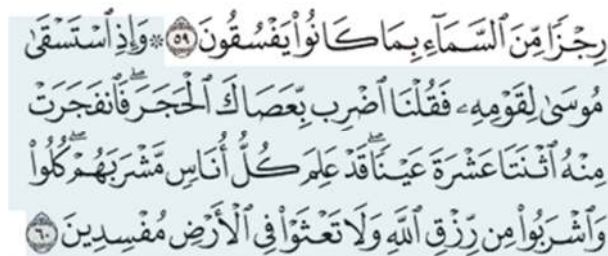 رِجْزًا مِّنَ ٱلسَّمَآءِ بِمَا كَانُوا۟ يَفْسُقُونَ ٥٩ ۞ وَإِذِ ٱسْتَسْقَىٰ
مُوسَىٰ لِقَوْمِهِۦ فَقُلْنَا ٱضْرِب بِّعَصَاكَ ٱلْحَجَرَ ۖ فَٱنفَجَرَتْ
مِنْهُ ٱثْنَتَا عَشْرَةَ عَيْنًا ۖ قَدْ عَلِمَ كُلُّ أُنَاسٍ مَّشْرَبَهُمْ ۖ كُلُوا۟
وَٱشْرَبُوا۟ مِن رِّزْقِ ٱللَّهِ وَلَا تَعْثَوْا۟ فِى ٱلْأَرْضِ مُفْسِدِينَ ٦٠